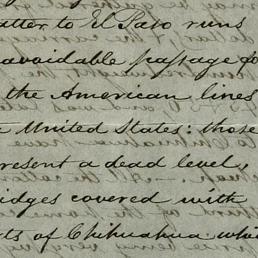 atter to El Paso runs
avoidable passage fo
the American lines
e United States: those
present a dead level,
idges covered with
ts of Chihuahua whi